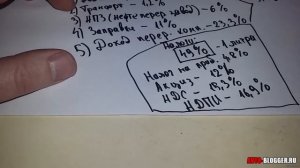 2) Трансport - 12%
3) НПЗ (нефте перер. завод) - 6%
4) Заправки - 11%
5) Доход перер. комп. - 23,3%
Налоги:
49% - 1 литра
Налог на приб. 4,6%
Акциз - 12%
НДС - 15,3%
НДПИ - 16,4%
AVTO-BLOGGER.RU